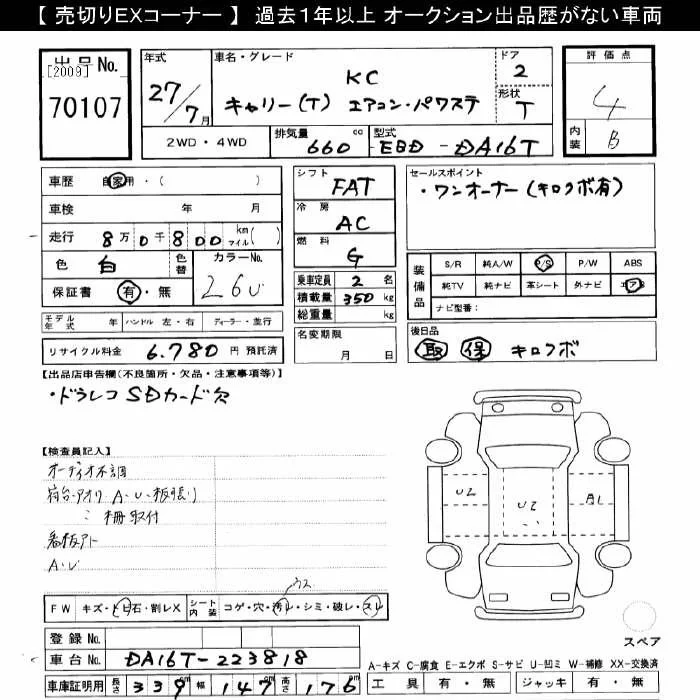 【 売切りEXコーナー 】 過去1年以上 オークション出品歴がない車両
出品 No.
[2009]
70107
年式
27/7月
車名・グレード
KC
キャリー(T) エアコン・パワステ
ドア
2
形状
T
評価点
4
内装
B
2WD・4WD
排気量 660 cc
型式 -EBD-DA16T
車歴 自家用・( )
車検 年 月
走行 8万0千800 km マイル( )
色 白
色替
カラーNo.
26U
保証書 有・無
モデル年式 年 ハンドル 左・右 ディーラー・並行
リサイクル料金 6.780 円 預託済
シフト
FAT
冷房
AC
燃料
G
乗車定員 2 名
積載量 350 kg
総重量 kg
名変期限
月 日
セールスポイント
・ワンオーナー(キロクボ有)
装備品
S/R 純A/W P/S P/W ABS
純TV 純ナビ 革シート 外ナビ エアB
ナビ型番:
後日品
取 保 キロクボ
【出品店申告欄(不良箇所・欠品・注意事項等)】
・ドラレコSDカード欠
【検査員記入】
オーディオ不調
荷台・アオリ A・U・板張り
: 柵取付
看板アト
A・U
U2
U2
A1
ウス
FW キズ・ヒビ石・割レX シート内装 コゲ・穴・汚レ・シミ・破レ・スレ
登録 No.
車台 No. DA16T-223818
車庫証明用 長さ 339 cm 幅 147 cm 高さ 176 cm
スペア
A-キズ C-腐食 E-エクボ S-サビ U-凹ミ W-補修 XX-交換済
工具 有・無 ジャッキ 有・無